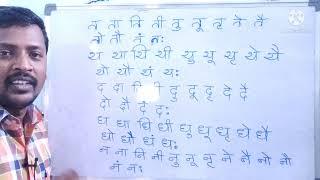 त ता ति ती तु तू तृ ते तै
तो तौ तं तः
थ था थि थी थु थू थृ थे थै
थो थौ थं थः
द दा दि दी दु दू दृ दे दै
दो दौ दं दः
ध धा धि धी धु धू धृ धे धै
धो धौ धं धः
न ना नि नी नु नू नृ ने नै नो नौ
नं नः